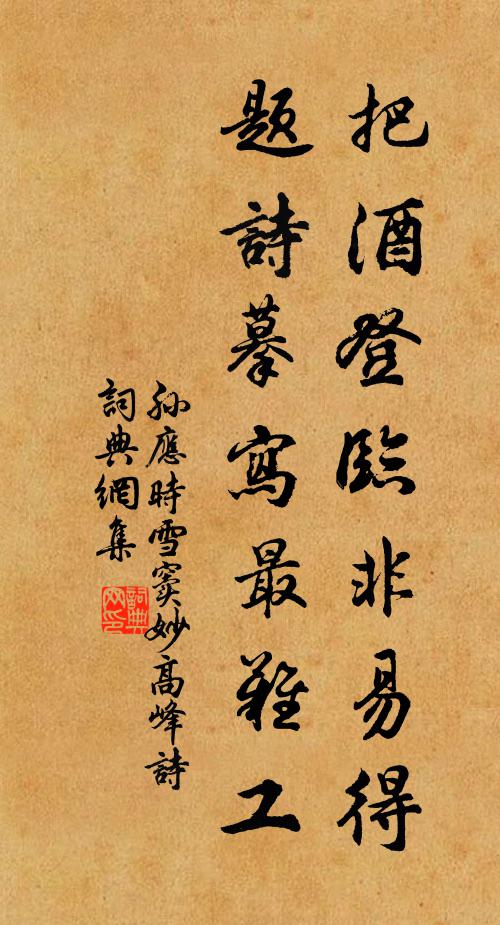 把酒登臨非易得
題詩摹寫最難工
孙應時雪窦妙高峰詩
詞典網集
詞典
网印